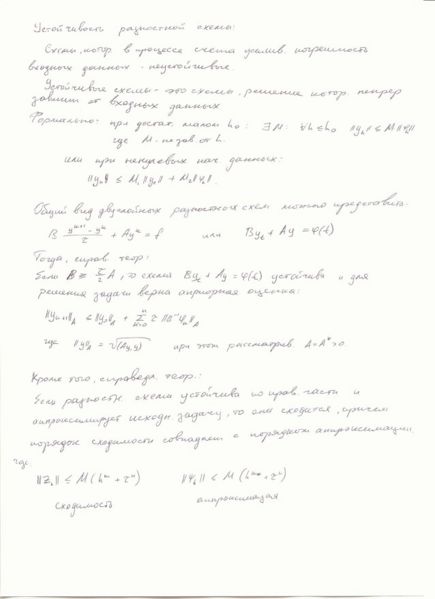 Устойчивость разностной схемы:
Схемы, котор. в процессе счета усилив. погрешность
входных данных - неустойчивые.
Устойчивые схемы - это схемы, решение котор. непрер
зависит от входных данных
Формально: при достат. малом h₀: ∃ M: ∀h ≤ h₀ ‖yₕ‖ ≤ M‖φₕ‖
где M - незав от h.
или при ненулевых нач. данных:
‖yₙ‖ ≤ M₁‖y₀‖ + M₂‖φₕ‖
Общий вид двуслойных разностных схем можно представить:
B (yⁿ⁺¹ - yⁿ)/τ + Ayⁿ = f или Byₜ + Ay = φ(t)
Тогда, справ. теор:
Если B ≥ τ/2 A, то схема Byₜ + Ay = φ(t) устойчива и для
решения задачи верна априорная оценка:
‖yₙ₊₁‖_A ≤ ‖y₀‖_A + Σ τ‖B⁻¹φₙ‖_A
где ‖y‖_A = √(Ay,y) при этом рассматрив. A = A* > 0
Кроме того, справедл. теор.:
Если разностн. схема устойчива по прав. части и
аппроксимирует исходн. задачу, то она сходится, причем
порядок сходимости совпадает с порядком аппроксимации,
где
‖zₕ‖ ≤ M(hᵐ + τⁿ) ‖ψₕ‖ ≤ M(hᵐ + τⁿ)
сходимость аппроксимация